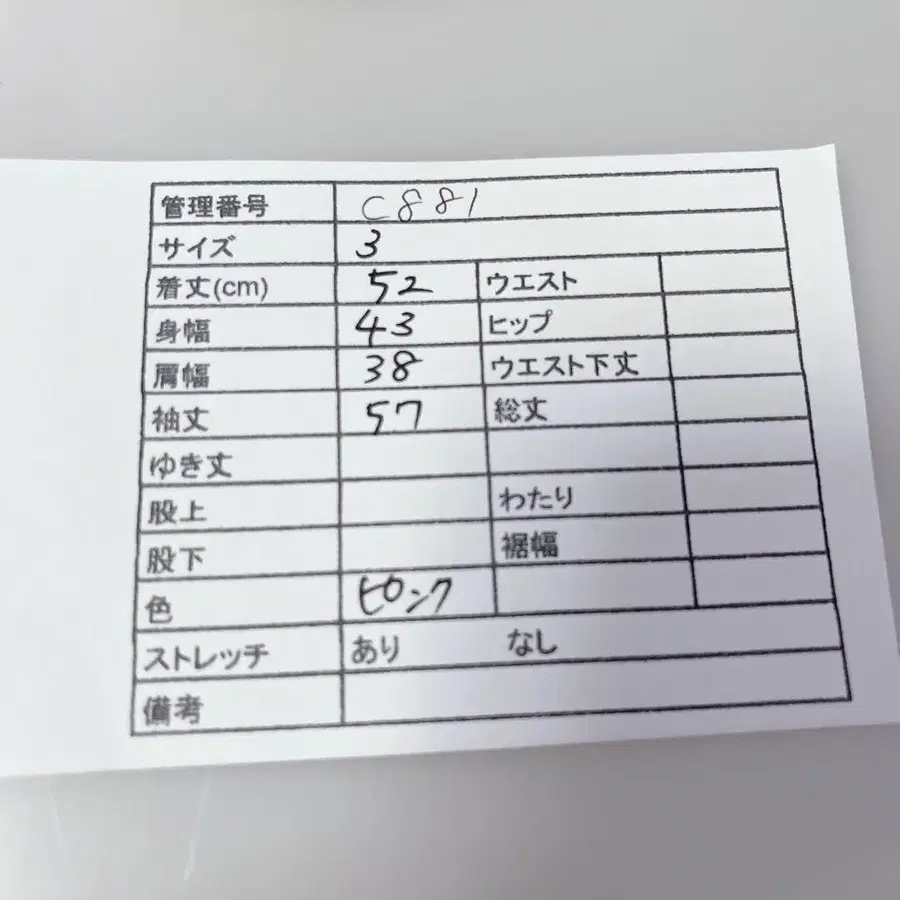 管理番号 C881
サイズ 3
着丈(cm) 52 ウエスト
身幅 43 ヒップ
肩幅 38 ウエスト下丈
袖丈 57 総丈
ゆき丈
股上 わたり
股下 裾幅
色 ピンク
ストレッチ あり なし
備考